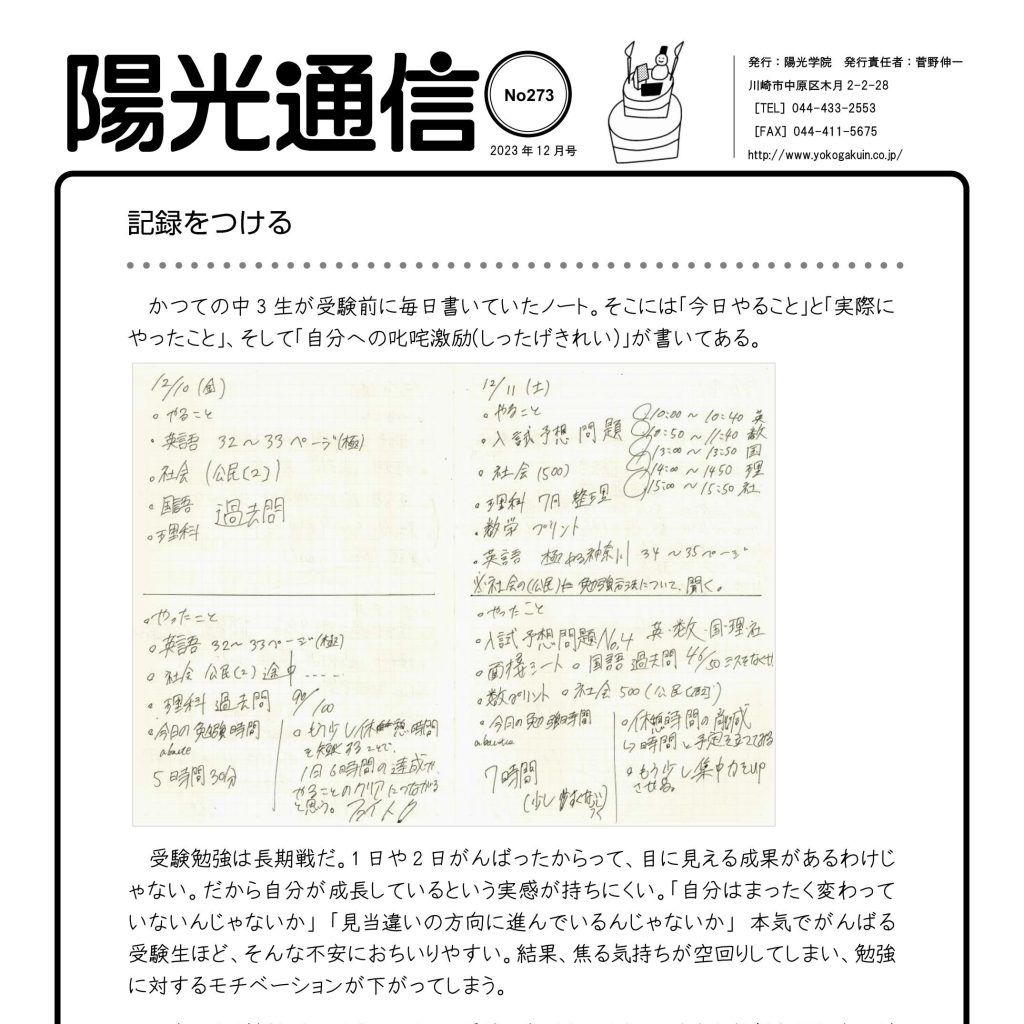 陽光通信
No273
2023年12月号
発行：陽光学院　発行責任者：菅野伸一
川崎市中原区木月2-2-28
［TEL］044-433-2553
［FAX］044-411-5675
http://www.yokogakuin.co.jp/
記録をつける
かつての中3生が受験前に毎日書いていたノート。そこには「今日やること」と「実際に
やったこと」、そして「自分への叱咤激励(しったげきれい)」が書いてある。
12/10（金）
。やること
・英語　32～33ページ(極)
。社会（公民(2)）
。国語　過去問
。理科
。やったこと
。英語　32～33ページ(極)
。社会　公民(2)途中……
。理科　過去問　90/100
・今日の勉強時間
5時間30分
。もう少し休憩時間
を短縮することで、
1日6時間の達成が
やることのクリアにつながる
と思う。ファイトク
12/11（土）
。やること
。入試予想問題
10:00～10:40 英
10:50～11:40 数
13:00～13:50 国
14:00～1450 理
15:00～15:50 社
。社会（500）
。理科　7月　整理
。数学　プリント
。英語　極める神奈川　34～35ページ
※社会の(公民)は勉強方法について、聞く。
。やったこと
。入試予想問題No,4　英・数・国・理・社
・面接シート。国語 過去問 46/50 ミスをなくせ
。数プリント　。社会500（公民
・今日の勉強時間
7時間
。休憩時間の削減
↳時間と予定を立ててみる
。もう少し集中力をup
させる。
受験勉強は長期戦だ。1日や2日がんばったからって、目に見える成果があるわけじ
ゃない。だから自分が成長しているという実感が持ちにくい。「自分はまったく変わって
いないんじゃないか」「見当違いの方向に進んでいるんじゃないか」 本気でがんばる
受験生ほど、そんな不安におちいりやすい。結果、焦る気持ちが空回りしてしまい、勉強
に対するモチベーションが下がってしまう。